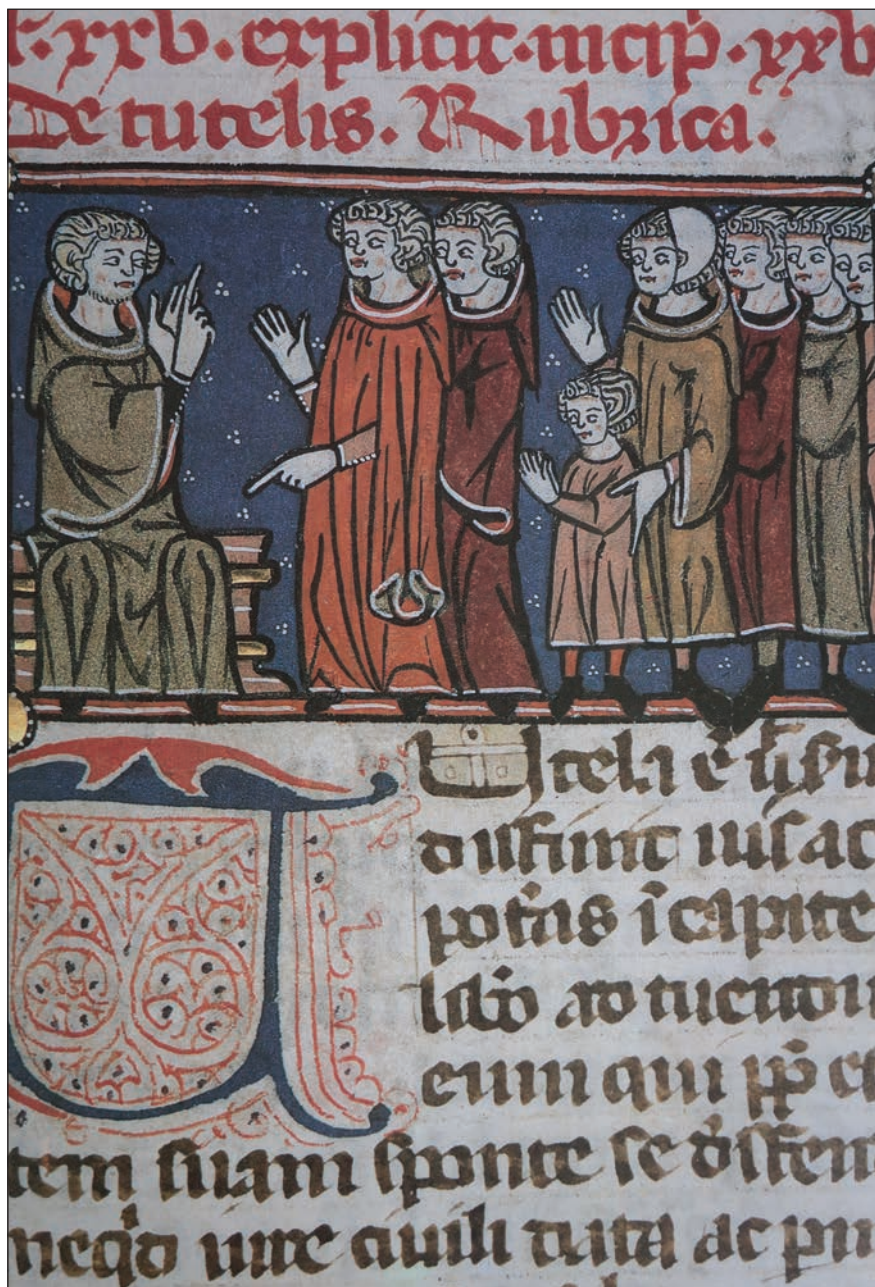 xxv. explicit. incip̄. xxv
De tutelis. Rubrica.
TUtela ē
diffinit ius ac
potāas ī capite
lib̄o ad tuendu
eum qui pp̄ et
tem suam sponte se d̄efen
iure ciuili data ac